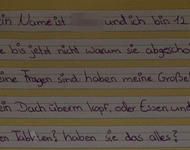 ein Name ist und ich bin 11
e bis jetzt nicht warum sie abgescha
ine Fragen sind: haben meine Große
ein Dach überm Kopf, oder Essen und
en Tabletten? haben sie das alles?